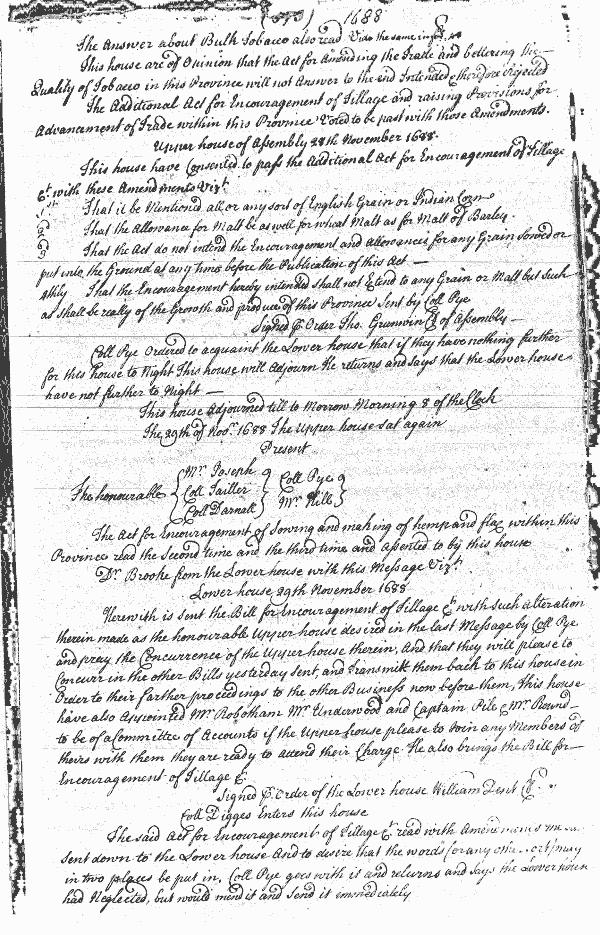 1688
The Answer about Bulk Tobacco also read
This house are of Opinion that the Act for Amending the Trade and bettering the
Quality of Tobaco in this Province will not Answer to the end Intended therefore rejected
The Additional Act for Encouragement of Tillage and raising Provisions for
Advancement of Trade within this Province Voted to be past with those Amendments.
Upper house of Assembly 28th November 1688.
This house have Consented to pass the Additional Act for Encouragement of Tillage
&c. with these Amendments Vizt.
1st That it be Mentioned all or any sort of English Grain or Indian Corne
2 That the Allowance for Malt be as well for wheat Malt as for Malt of Barley
3 That the Act do not intend the Encouragement and Allowances for any Grain Sowed or
put into the Ground at any time before the Publication of this Act —
4thly That the Encouragement hereby intended shall not Extend to any Grain or Malt but Such
as shall be really of the Growth and produce of this Province Sent by Coll Pye
Signed Order Tho. Grunwin of Assembly —
Coll Pye Ordered to acquaint the Lower house that if they have nothing further
for this house to Night This house will Adjourn He returns and says that the Lower house
have not further to Night —
This house Adjourned till to Morrow Morning 8 of the Clock
The 29th of Nov. 1688 The Upper house Sat again
Present
The honourable { Mr. Joseph
Coll Tailler
Coll Darnall } Coll Pye
Mr. Hill }
The Act for Encouragement of Sowing and making of hemp and flax within this
Province read the Second time and the third time and Assented to by this house
Dr. Brooke from the Lower house with this Message Vizt.
Lower house 29th November 1688.
Herewith is sent the Bill for Encouragement of Tillage &c with Such alteration
therein made as the honourable Upper house desired in the last Message by Coll Pye
and pray the Concurrence of the Upper house therein, And that they will please to
Concurr in the other Bills yesterday sent, and Transmitt them back to this house in
Order to their farther proceedings to the other Business now before them, This house
have also Appointed Mr. Robotham Mr. Underwood and Captain Pile Mr. Round
to be of a Committee of Accounts if the Upper house please to Join any Members of
theirs with them they are ready to attend their Charge He also brings the Bill for
Encouragement of Tillage &c.
Signed Order of the Lower house William Dent
Coll Digges Enters this house
The said Act for Encouragement of Tillage &c. read with Amendments
Sent down to the Lower house And to desire that the words
in two places be put in, Coll Pye goes with it and returns and Says the Lower house
had Neglected, but would mend it and Send it immediately